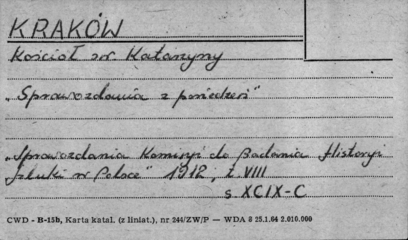 KRAKÓW
Kościół św Katarzyny
„Sprawozdania z posiedzeń"
„Sprawozdania Komisyi do Badania Historyi
Sztuki w Polsce" 1912, t. VIII
s XCIX-C
CWD - B-15b, Karta katal. (z liniat.), nr 244/ZW/P — WDA 8 25.1.64 2.010.000